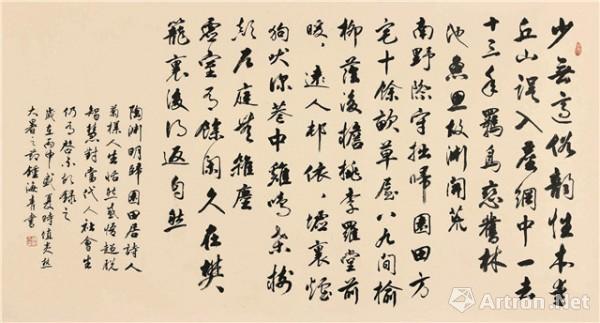 少無適俗韵性本愛
丘山誤入塵網中一去
十三年羈鳥戀舊林
池魚思故淵開荒
南野際守拙歸園田方
宅十餘畝草屋八九間榆
柳蔭後檐桃李羅堂前
曖〻遠人邨依〻墟裏煙
狗吠深巷中雞鳴桑樹
顛户庭無雜塵
虛室有餘閑久在樊
籠裏復得返自然
陶淵明歸園田居詩人
菊樣人生恬然感悟超脫
智慧對當代人社會生
仍爲啓示録之
歲在丙申盛夏時值炎熱
大暑之前鍾海青書
Artron.Net